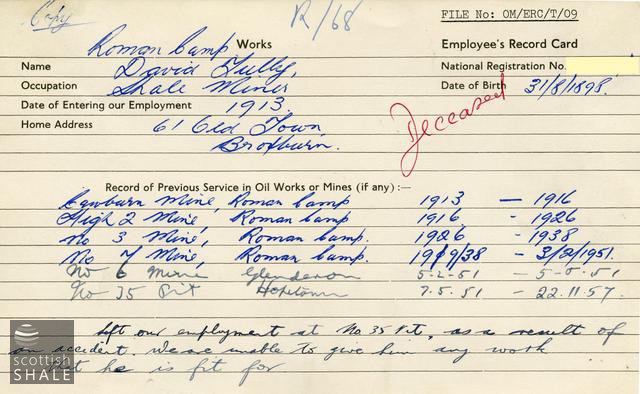 Copy
R/68
FILE No: OM/ERC/T/09
Roman Camp Works
Employee's Record Card
Name David Tully,
National Registration No.
Occupation Shale Miner
Date of Birth 31/8/1898.
Date of Entering our Employment 1913.
Deceased
Home Address 61 Old Town,
Broxburn.
Record of Previous Service in Oil Works or Mines (if any) :—
Mine, Roman Camp 1913 — 1916
High 2 Mine, Roman Camp 1916 - 1926
No 3 Mine, Roman Camp. 1926 - 1938
No 7 Mine, Roman Camp. /38 - 3/2/1951.
No 6 Mine 5-2-51 - 5-5-51
No 35 Pit Hopetoun 7.5.51 - 22.11.57.
Left our employment at No 35 Pit, as a result of
an accident. We are unable to give him any work
that he is fit for
scottish
SHALE